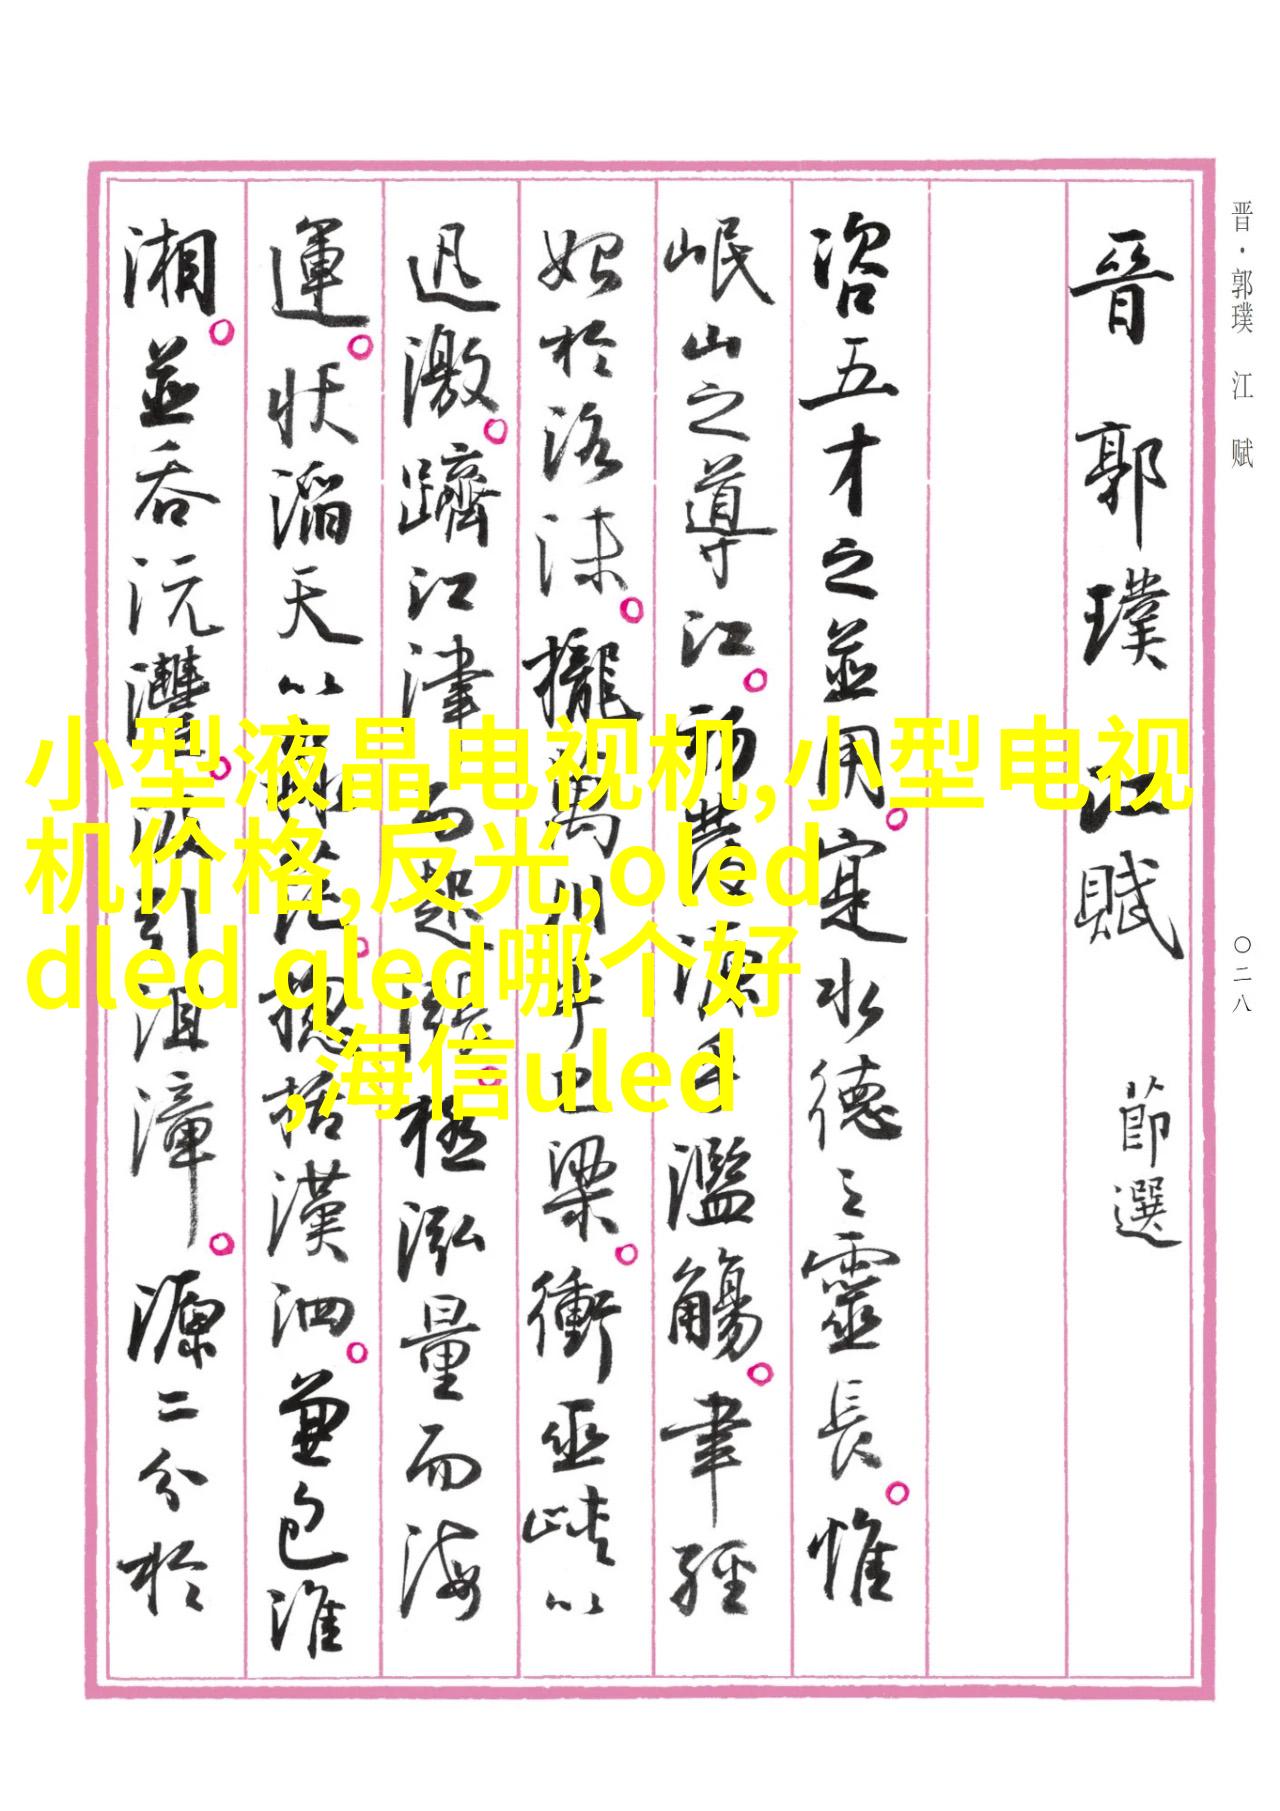 晋·郭璞 江 赋
〇二八
晉 郭 璞 江 賦 節選
咨五才之並用寔水德之靈長惟
岷山之導江初發源乎濫觴聿經
始於洛沬攏萬川乎巴梁衝巫峽以
迅激躋江津而起漲極泓量而海
運狀滔天以淼茫摠括漢泗兼包淮
湘並吞沅澧汲引沮漳源二分於
小型液晶电视机,小型电视
机价格,反光,oled
dled qled哪个好
,海信uled